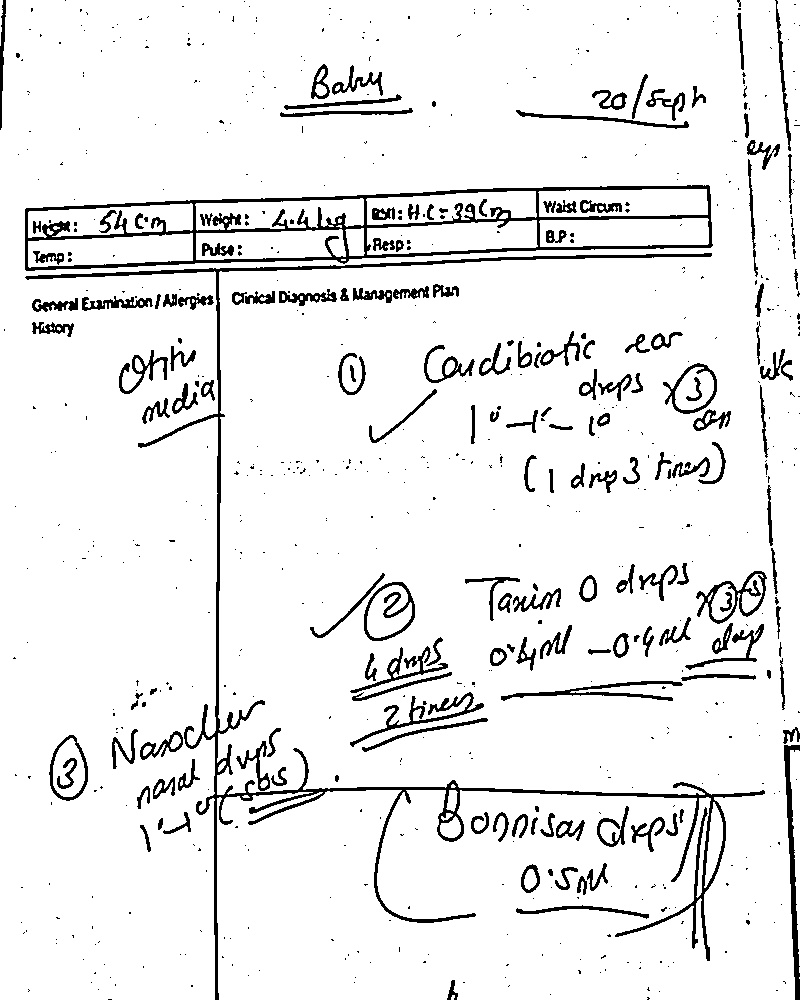 Baby
20/Sept
Height: 54 Cm Weight: 4.4 kg BMI: H.C = 39 Cm Waist Circum:
Temp: Pulse: Resp: B.P:
General Examination / Allergies Clinical Diagnosis & Management Plan
History
Otitis
media
① Candibiotic ear
drops x ③
1° - 1° - 1°
(1 drop 3 times)
② Taxim O drops
0.4ml - 0.4ml x ③
4 drops
2 times
③ Nasoclear
nasal drops
1° - 1° (SOS)
Bonnisan drops
0.5ml